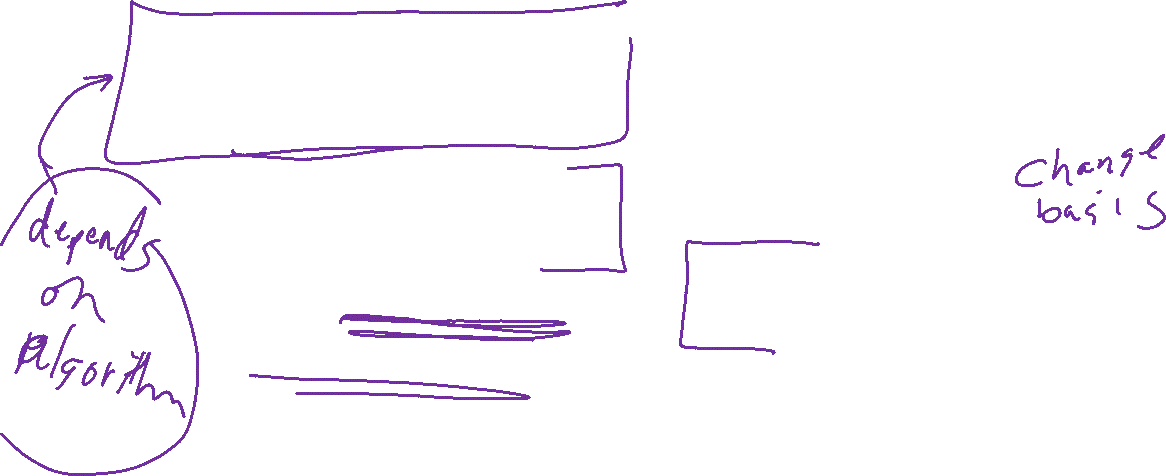 depends
on
Algorithm
Change
basis